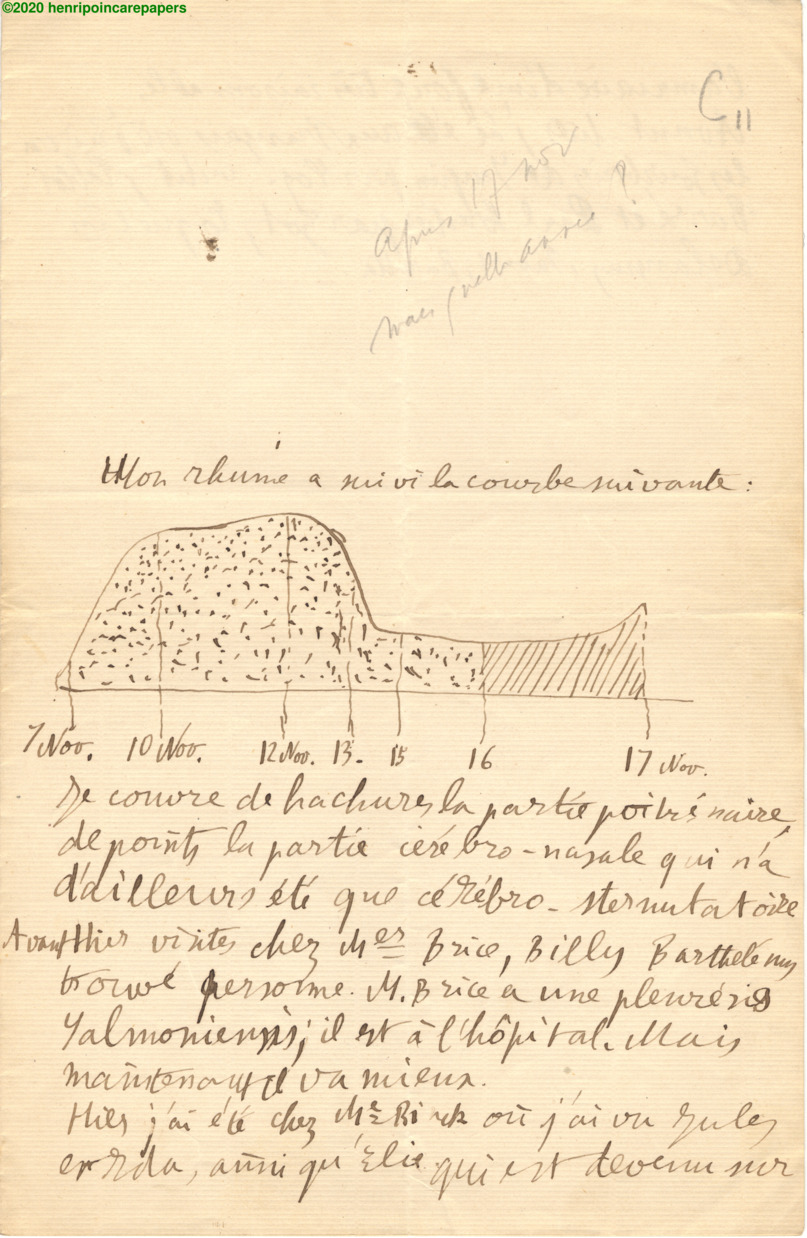 ©2020 henripoincarepapers
C 11
Après 17 nov
mais quelle année ?
Mon rhume a suivi la courbe suivante :
7 Nov. 10 Nov. 12 Nov. 13. 15 16 17 Nov.
Je couvre de hachures la partie poitrinaire,
de points la partie cérébro-nasale qui n'a
d'ailleurs été que cérébro-sternutatoire
Avant Hier visites chez Mes Brice, Billy Barthélemy
trouvé personne. M. Brice a une pleurésie
; il est à l'hôpital. Mais
maintenant il va mieux.
Hier j'ai été chez Me Rinck où j'ai vu Jules
et Ida, ainsi qu'Élie qui est devenu sur